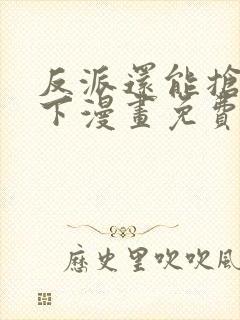 反派還能搶
下漫畫免費
歷史里吹吹風